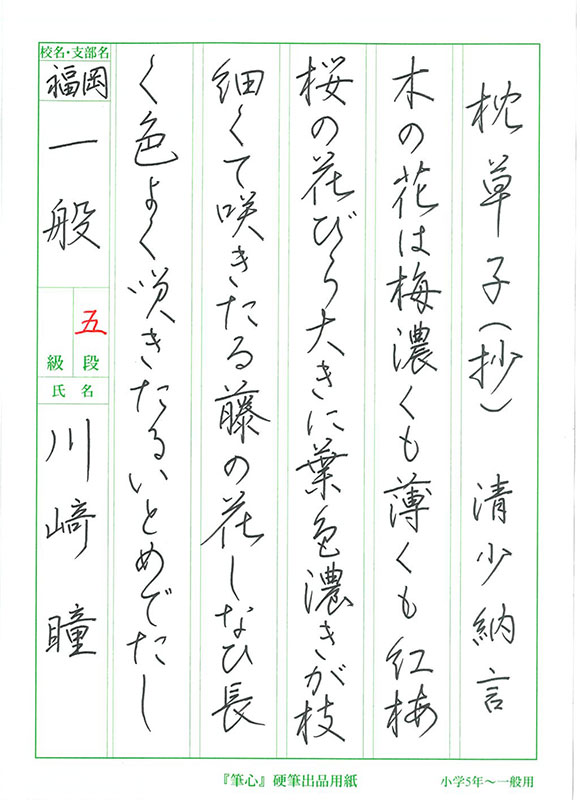 枕草子(抄) 清少納言
木の花は梅濃くも薄くも紅梅
桜の花びら大きに葉色濃きが枝
細くて咲きたる藤の花しなひ長
く色よく咲きたるいとめでたし
校名・支部名
福岡
一般
五
級 段
氏名
川﨑 瞳
『筆心』硬筆出品用紙
小学5年〜一般用